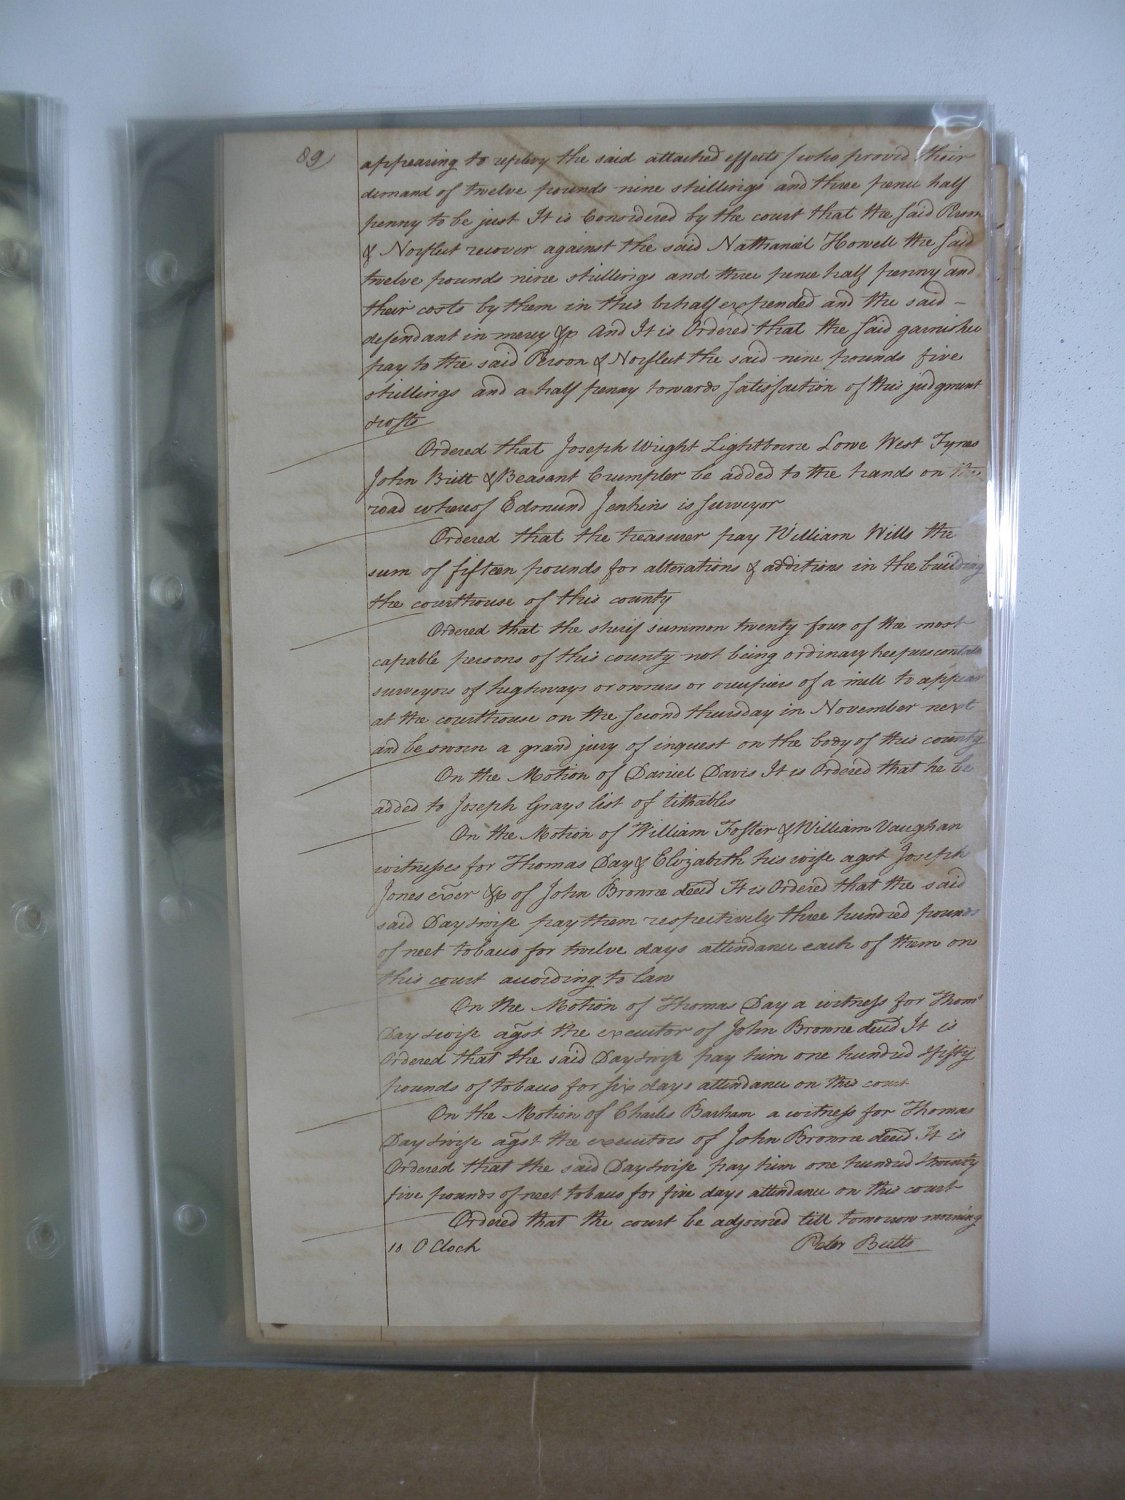 89
appearing to replevy the said attached effects / who proved their
demand of twelve pounds nine shillings and three pence half
penny to be just It is Considered by the court that the said
& Norfleet recover against the said Nathaniel Howell the said
twelve pounds nine shillings and three pence half penny and
their costs by them in this behalf expended and the said -
defendant in mercy &c And It is Ordered that the said garnishee
pay to the said & Norfleet the said nine pounds five
shillings and a half penny towards satisfaction of this judgment
&costs
Ordered that Joseph Wright Lightbourne Lowe West Tynes
John Britt & Beasant Crumpler be added to the hands on the
road whereof Edmund Jenkins is surveyor
Ordered that the treasurer pay William Wills the
sum of fifteen pounds for alterations & additions in the building
the courthouse of this county
Ordered that the sherif summon twenty four of the most
capable persons of this county not being ordinary keepers constables
surveyors of highways or owners or occupiers of a mill to appear
at the courthouse on the second thursday in November next
and be sworn a grand jury of inquest on the body of this county
On the Motion of Daniel Davis It is Ordered that he be
added to Joseph Grays list of tithables
On the Motion of William Foster & William Vaughan
witnesses for Thomas Day & Elizabeth his wife agst Joseph
Jones exer &c of John Browne decd It is Ordered that the said
said Day &wife pay them respectively three hundred pounds
of neet tobacco for twelve days attendance each of them on
this court according to law
On the Motion of Thomas Day a witness for Thoms
Day &wife agst the executor of John Browne decd It is
Ordered that the said Day &wife pay him one hundred &fifty
pounds of tobacco for six days attendance on this court
On the Motion of Charles Barham a witness for Thomas
Day &wife agst the executors of John Browne decd It is
Ordered that the said Day &wife pay him one hundred &twenty
five pounds of neet tobacco for five days attendance on this court
Ordered that the court be adjourned till tomorrow morning
10 O Clock
Peter Butts